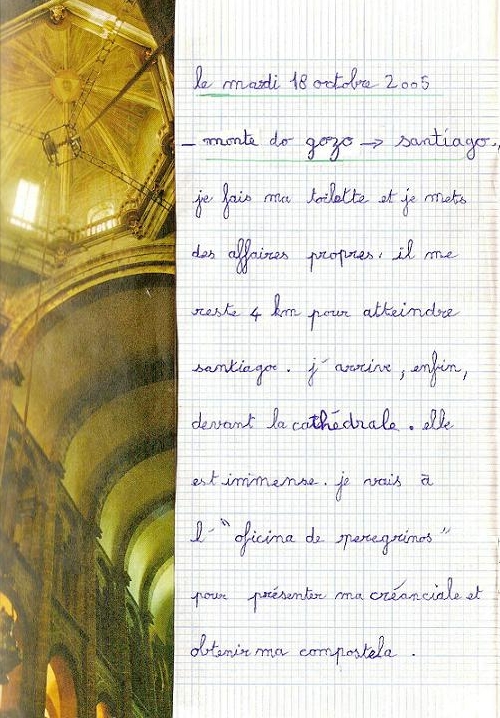 le mardi 18 octobre 2005
- monte do gozo → santiago.
je fais ma toilette et je mets
des affaires propres. il me
reste 4 km pour atteindre
santiago. j'arrive, enfin,
devant la cathédrale. elle
est immense. je vais à
l'"oficina de peregrinos"
pour présenter ma créanciale et
obtenir ma compostela.